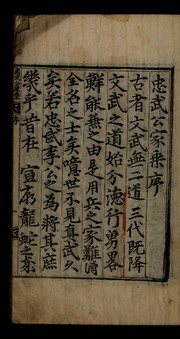 忠武公家乘序
古者文武無二道三代既降
文武之道始分德行勇畧
鮮能兼之由是用兵之家難得
全名之士矣噫世不見真武久
矣若忠武李公之為將其庶
幾乎昔在 宣廟龍蛇之東